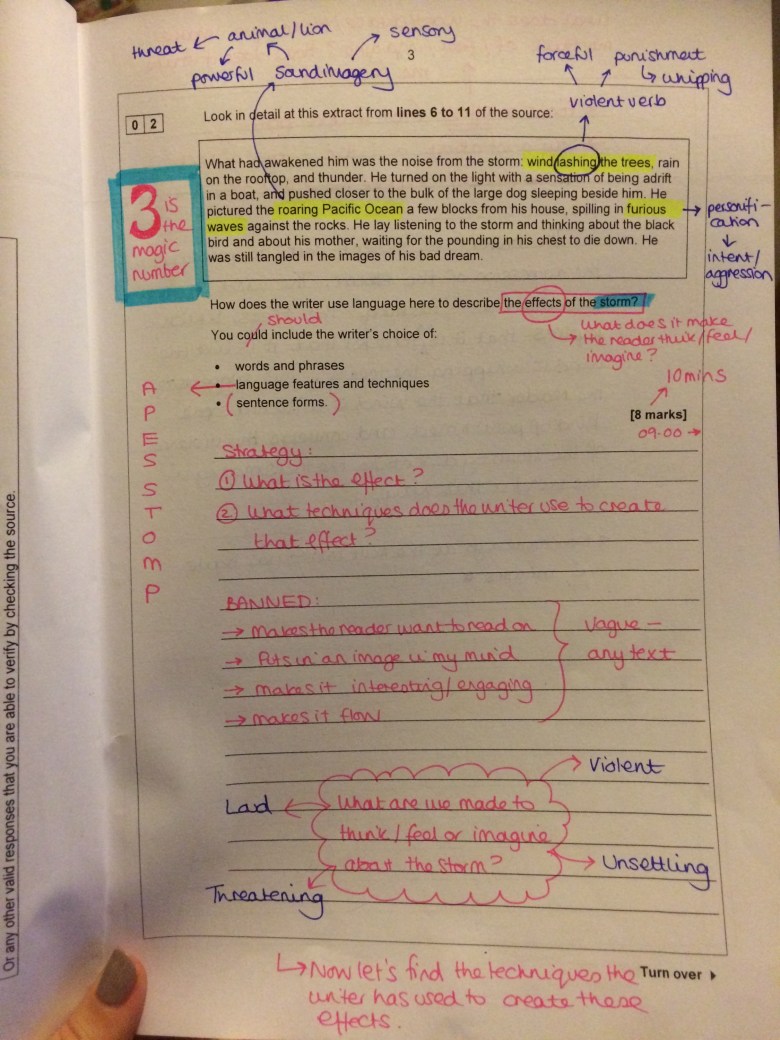 threat ← animal/lion
sensory
powerful
Sound imagery
3
forceful
punishment
↳ whipping
violent verb
0 2
Look in detail at this extract from lines 6 to 11 of the source:
What had awakened him was the noise from the storm: wind lashing the trees, rain
on the rooftop, and thunder. He turned on the light with a sensation of being adrift
in a boat, and pushed closer to the bulk of the large dog sleeping beside him. He
pictured the roaring Pacific Ocean a few blocks from his house, spilling in furious
waves against the rocks. He lay listening to the storm and thinking about the black
bird and about his mother, waiting for the pounding in his chest to die down. He
was still tangled in the images of his bad dream.
3 is
the
magic
number
→ personifi-
cation
↓
intent/
aggression
How does the writer use language here to describe the effects of the storm?
should
You could include the writer's choice of:
What does it make
→ the reader think/feel/
imagine?
• words and phrases
• language features and techniques
• (sentence forms.)
10mins
[8 marks]
09.00 →
A
P
E
S
S
T
O
M
P
Strategy:
① What is the effect?
② What techniques does the writer use to create
that effect?
BANNED:
→ makes the reader want to read on
→ Puts in an image in my mind
→ makes it interesting/engaging
→ makes it flow
Vague –
any text
Violent
Loud
What are we made to
think/feel or imagine
about the storm?
Unsettling
Threatening
↳ Now let's find the techniques the
writer has used to create these
effects.
Turn over ▸
Or any other valid responses that you are able to verify by checking the source.